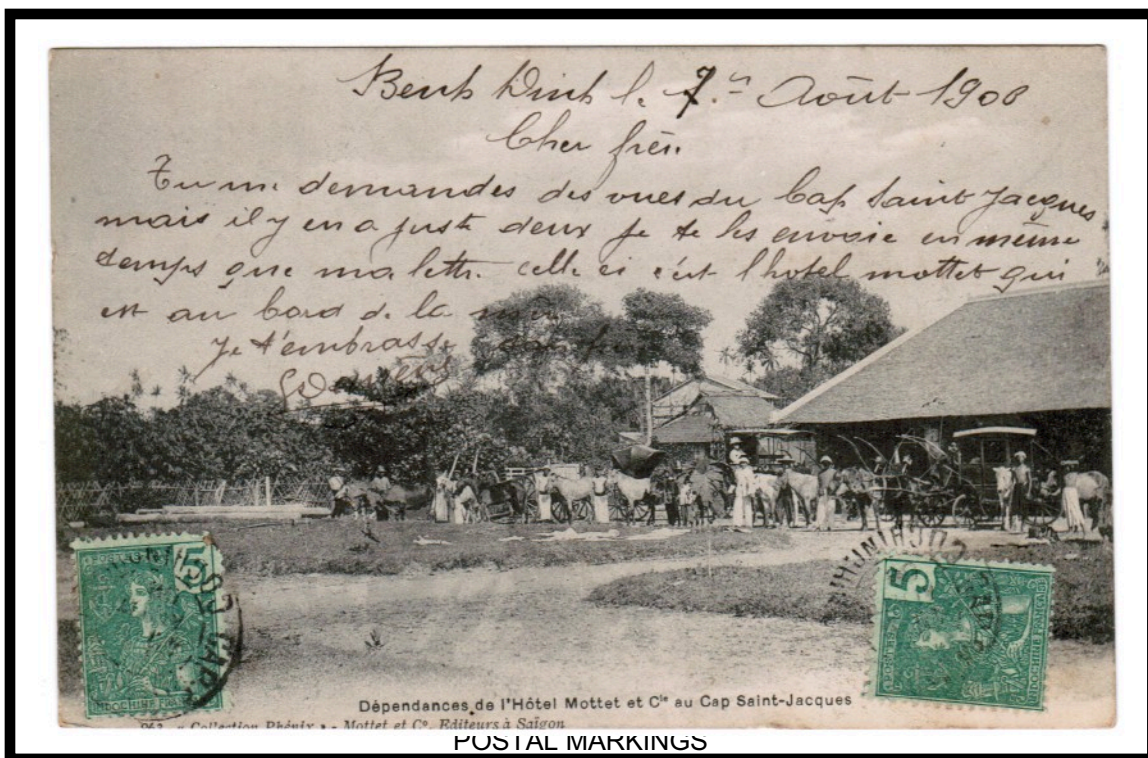 Benh Dinh le 7 Août 1908
Cher frère
Tu me demandes des vues du Cap Saint Jacques
mais il y en a juste deux je te les envoie en même
temps que ma lettre. celle ci c'est l'hotel mottet qui
est au bord de la mer
Je t'embrasse
5
INDOCHINE FRAN
COCHINCHI
5
INDOCHINE FRANÇ
Dépendances de l'Hôtel Mottet et Cie au Cap Saint-Jacques
963. « Collection Phénix » - Mottet et Co. Editeurs à Saïgon
POSTAL MARKINGS